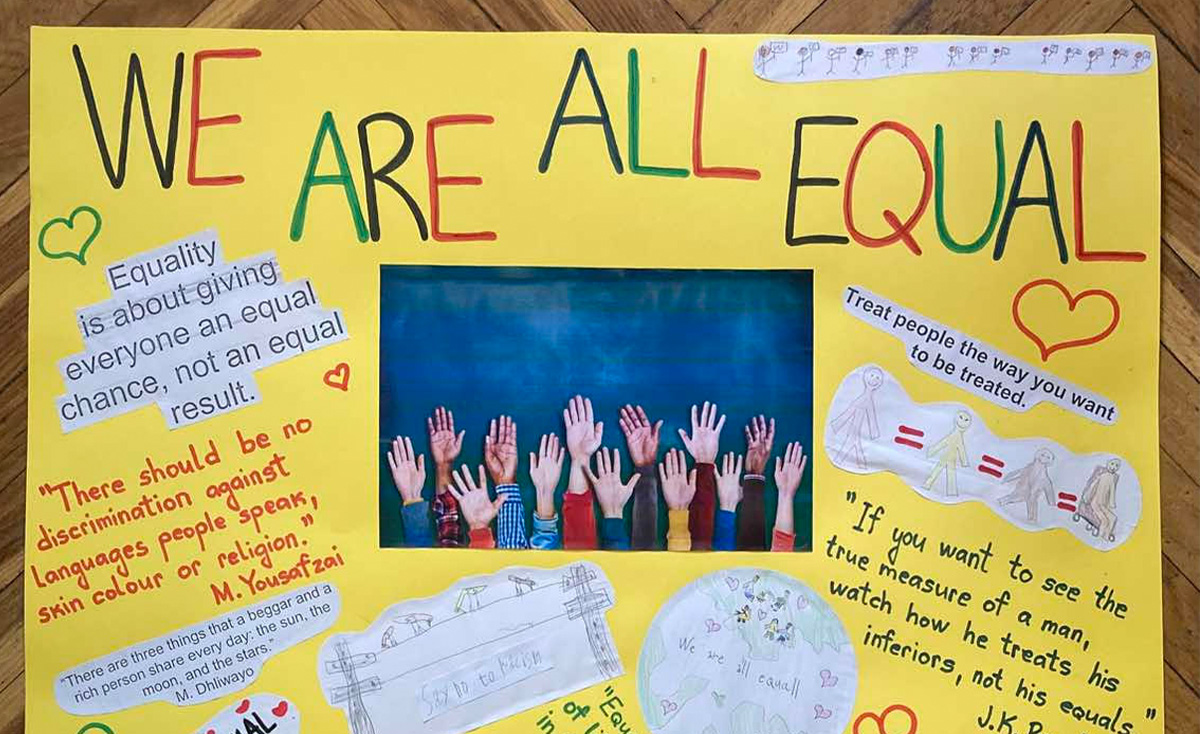 WE ARE ALL EQUAL
Equality
is about giving
everyone an equal
chance, not an equal
result.
"There should be no
discrimination against
languages people speak,
skin colour or religion."
M. Yousafzai
"There are three things that a beggar and a
rich person share every day: the sun, the
moon, and the stars."
M. Dhliwayo
Treat people the way you want
to be treated.
=
=
=
"If you want to see the
true measure of a man,
watch how he treats his
inferiors, not his equals."
J.K.
Say no to
We are
all equall
"Equ
of
in